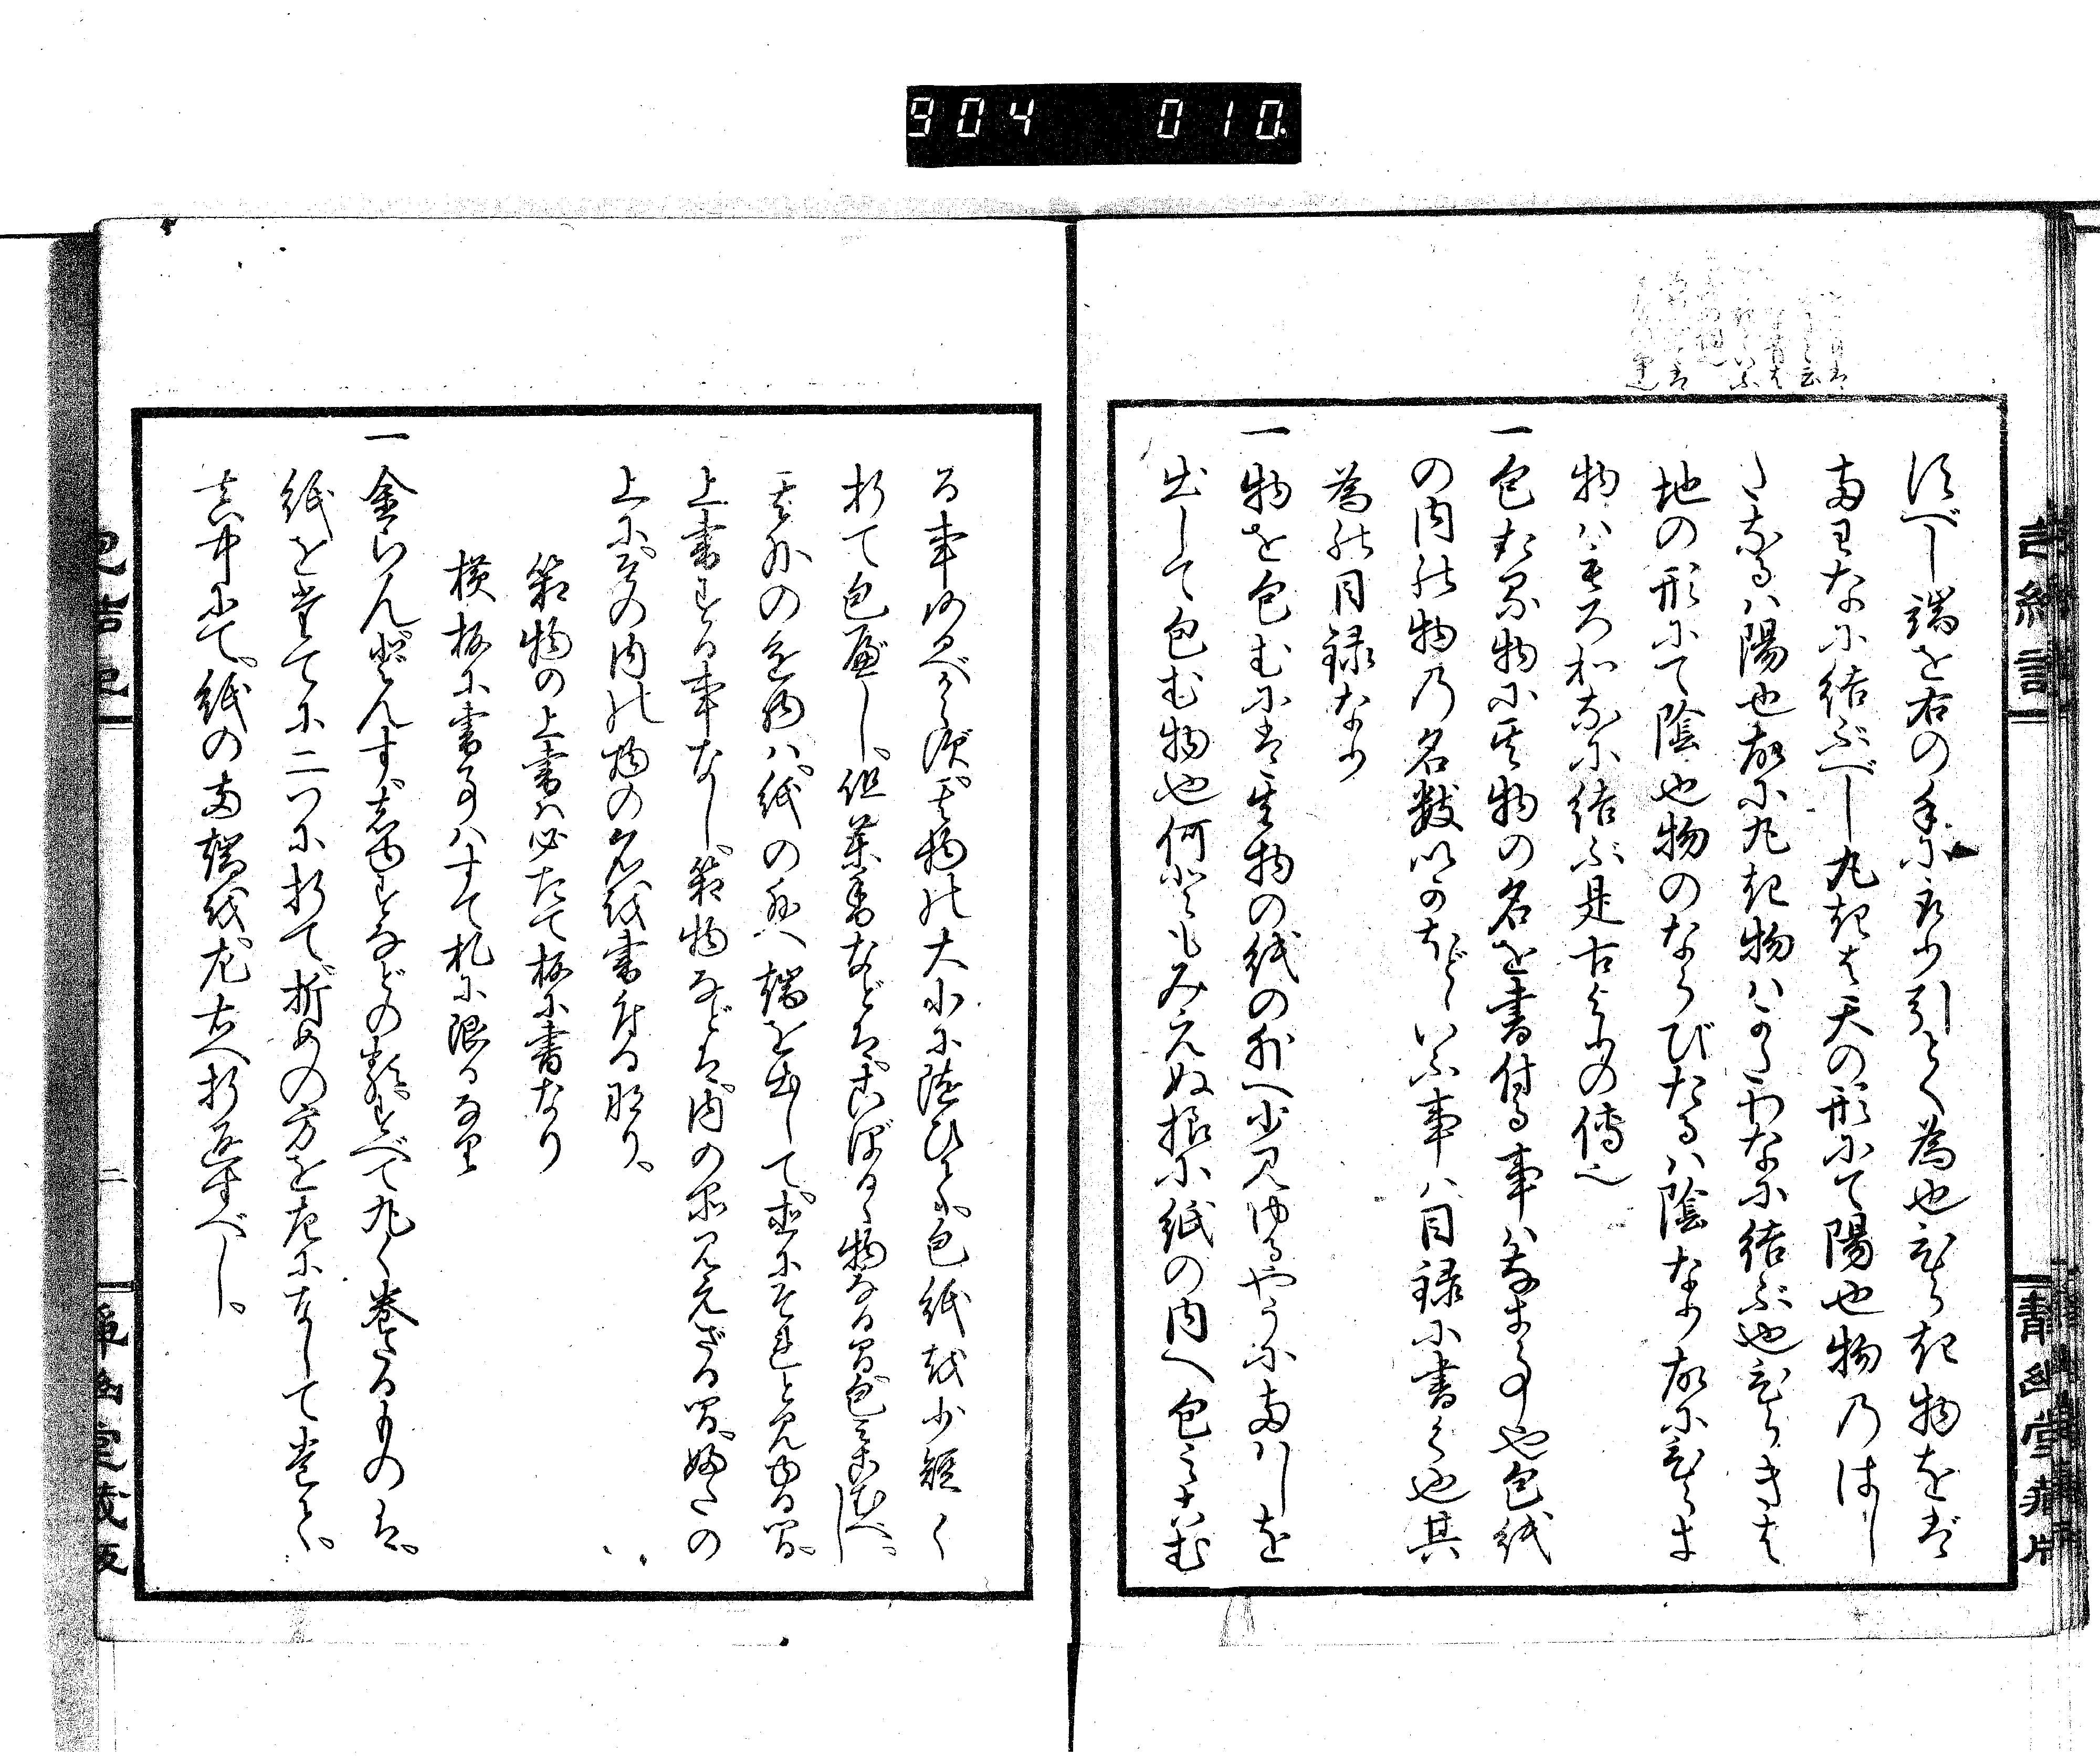 904 010
須べし端を右の手に取り引とく為也ひらき物をば
両わなに結ぶべし丸きは天の形にて陽也物のはし
たなるは陽也故に丸き物はかたわなに結ぶ也ひらきは
地の形にて陰也物のならびたるは陰なり故にひらき
物はもろわなに結ぶ是古よりの傳也
一包たる物に其物の名を書付る事はなき事也包紙
の内の物の名数いかほどゝいふ事は目録に書く也其
為の目録なり
一物を包むには其物の紙の外へ少見ゆるやうに両はしを
出して包む物也何ともみえぬ様に紙の内へ包みこむ
る事あるべからず其物の大小に随ひて包紙を少短く
折て包べし但薬香などはこぼるゝ物なる間包みこむべし
其外の進物は紙の外へ端を出して直にそれと見ゆる間
上書する事なし箱物などは内の品見えざる間ふたの
上に其の内の物の名を書付る也
箱物の上書は必たて板に書なり
横板に書事はすて札に限るなり
一金らんどんす巻物などの類すべて丸く巻たるものは
紙をたてに二つに折て折めの方を左になして巻く
真中にて紙の両端を左右へ折返すべし
包結記
二
靜幽堂蔵版